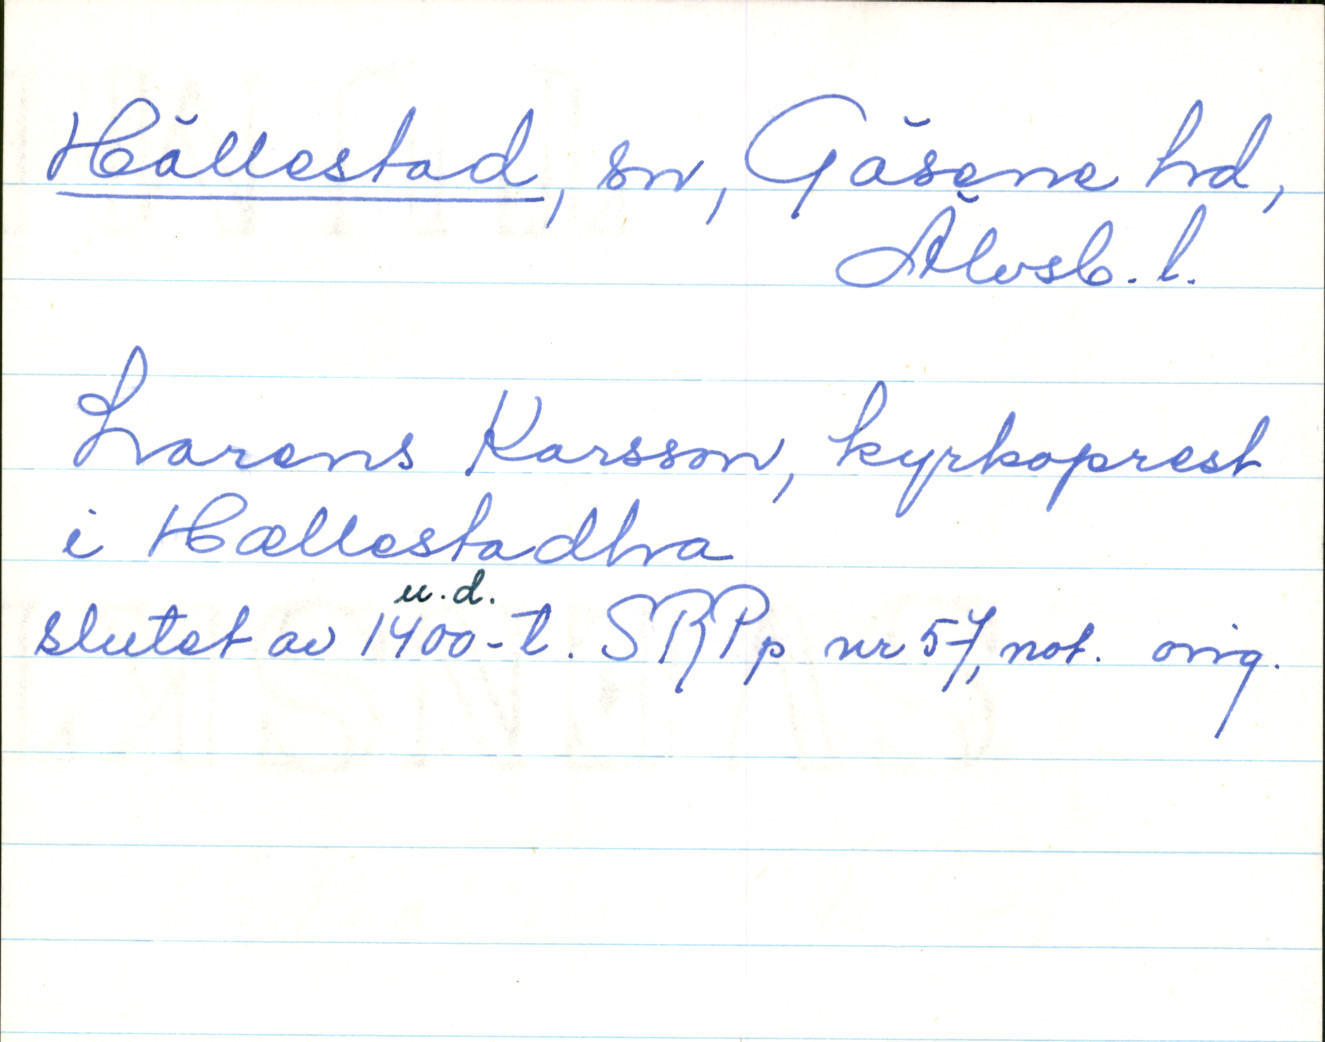 Hällestad, sn, Gäsene hd,
Älvsb. l.
Larens Karsson, kyrkoprest
i Hællestadhra
u.d.
slutet av 1400-t. SRPp nr 57, not. orig.